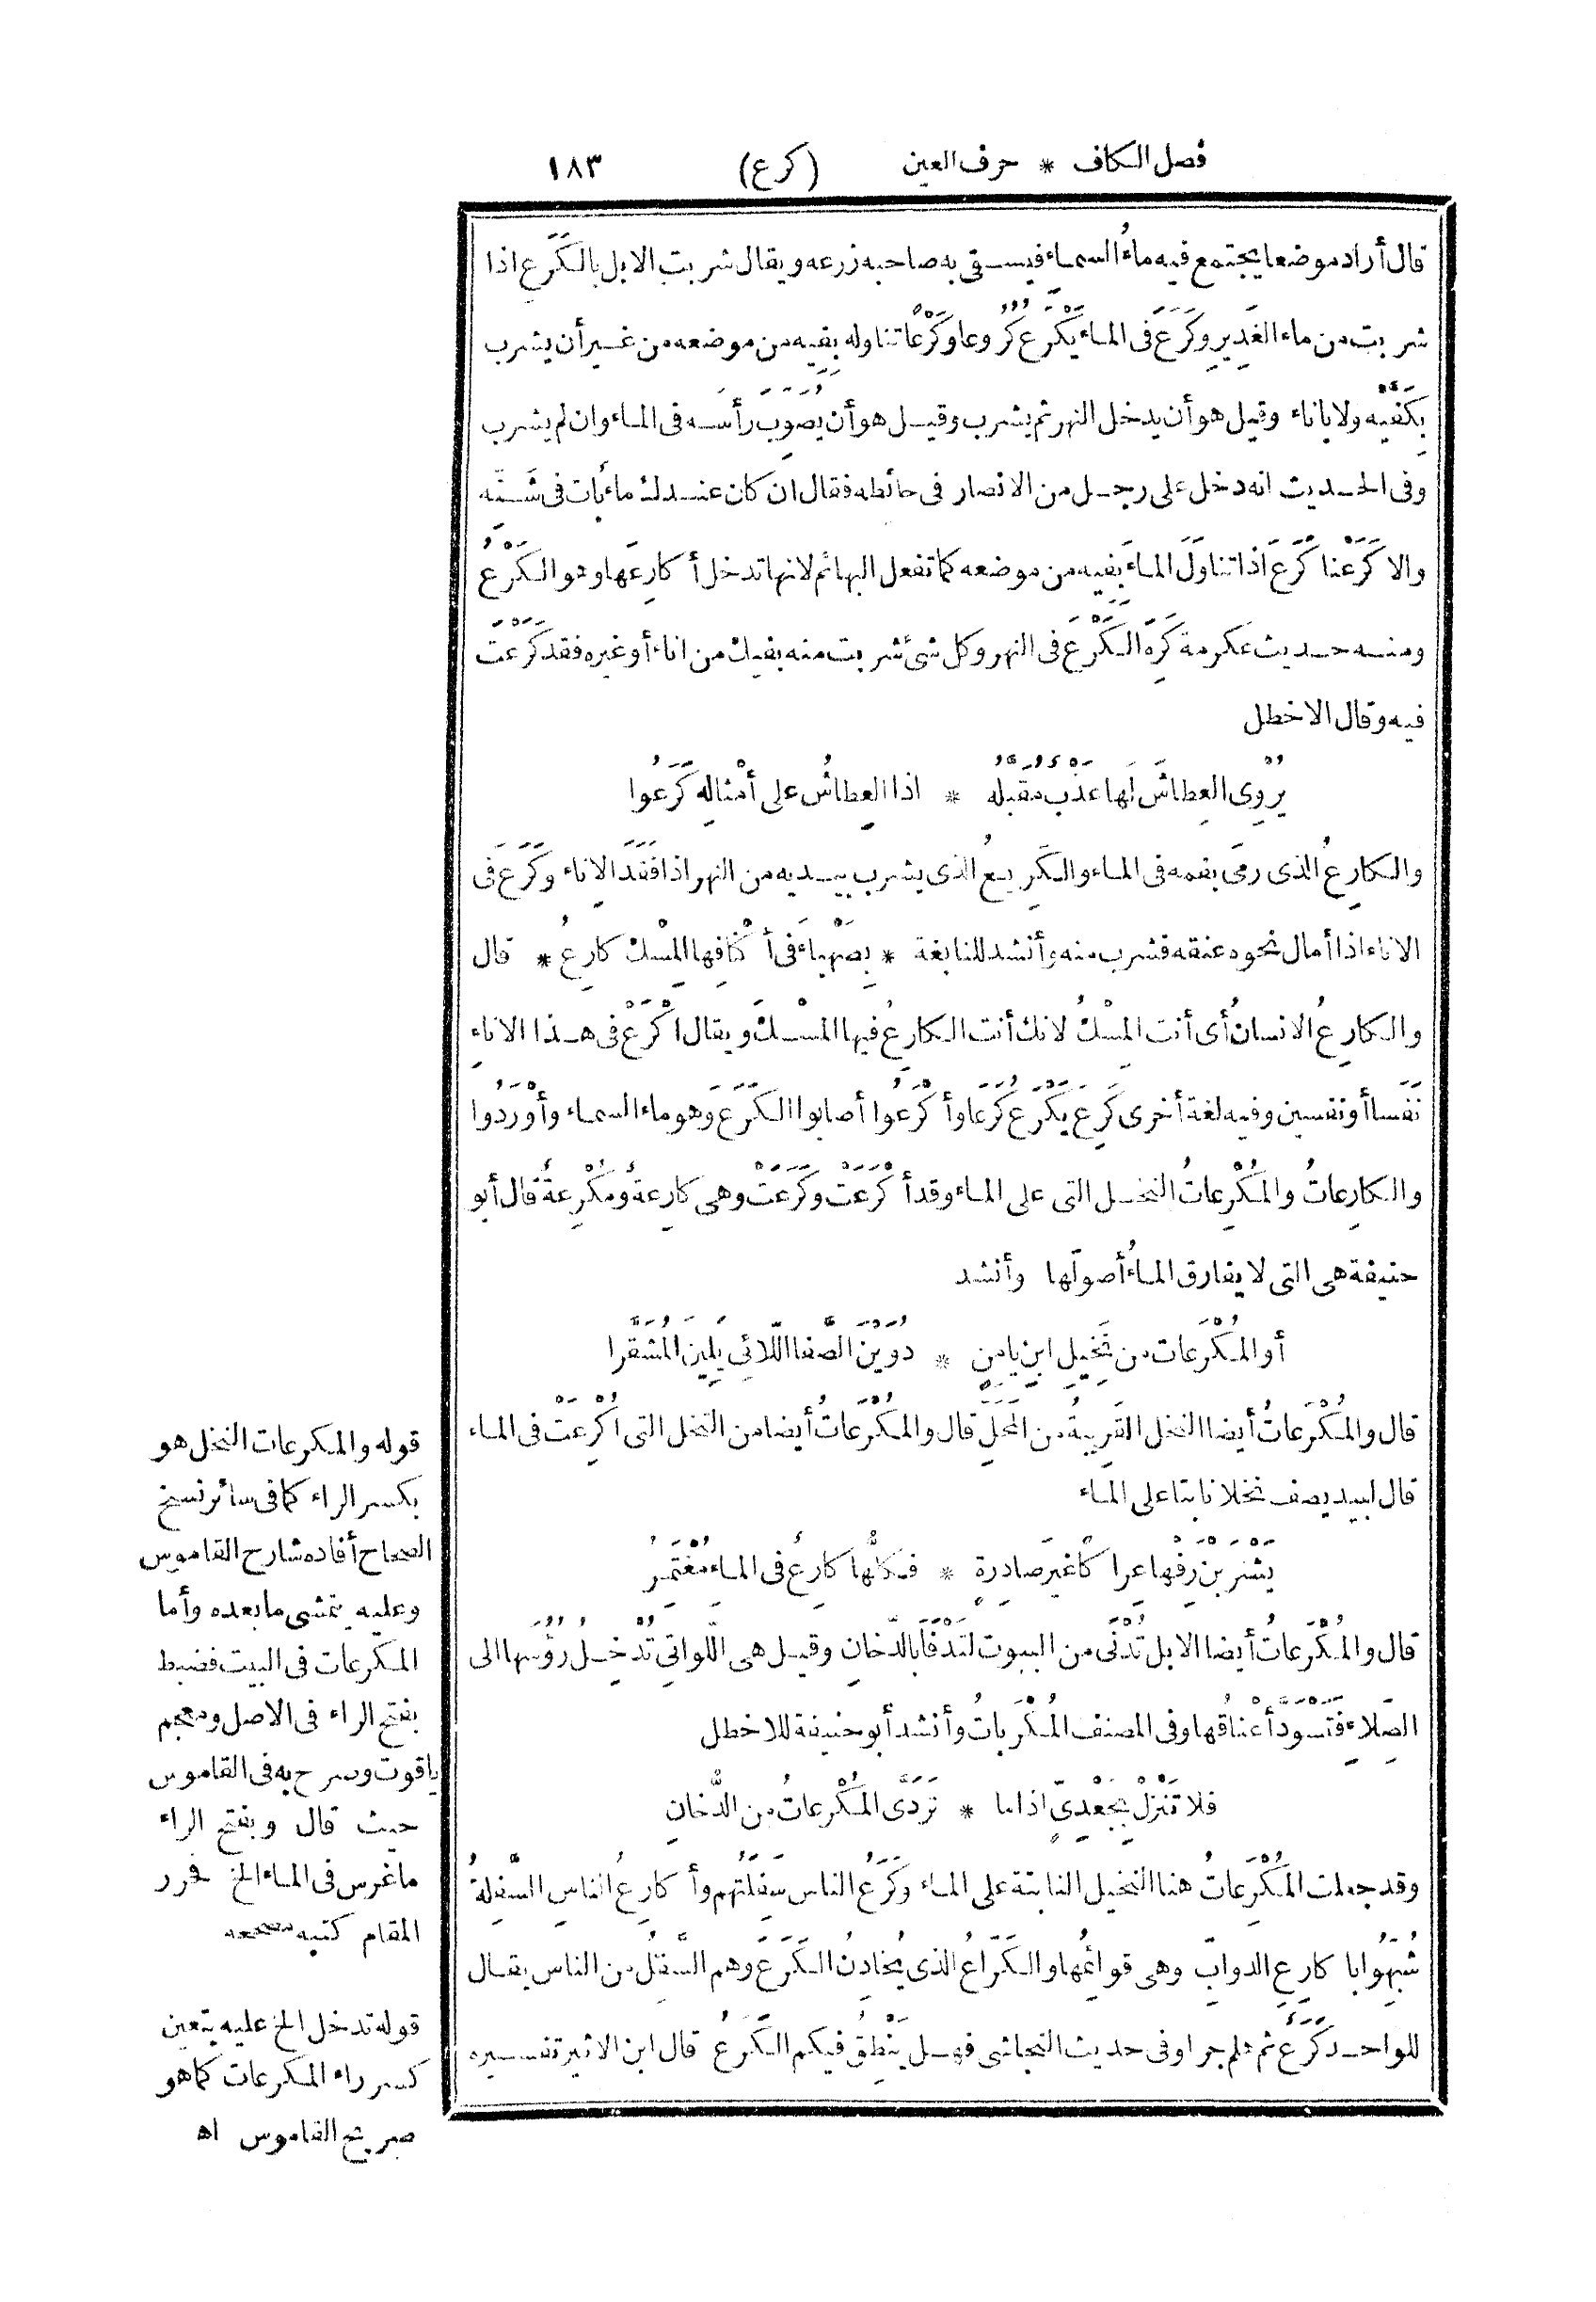 فصل الكاف * حرف العين (كرع) ١٨٣
قال أراد موضعا يجتمع فيه ماءُ السماء فيسقى به صاحبه زرعه ويقال شربت الابل بالكَرَع اذا
شربت من ماء الغَدِيرِ وكَرَعَ فى الماء يَكْرَع كُرُوعا وكَرْعًا تناوله بِفِيه من موضعه من غير أن يشرب
بِكَفَّيْه ولا باناء وقيل هو أن يدخل النهر ثم يشرب وقيل هو أن يُصَوِّبَ رأْسَه فى الماء وان لم يشرب
وفى الحديث انه دخل على رجل من الانصار فى حائطه فقال ان كان عندك ماءٌ بات فى شَنِّه
والا كَرَعْنا كَرَعَ اذا تناوَلَ الماءَ بِفِيه من موضعه كما تفعل البهائم لانها تدخل أَكارِعَها وهو الكَرْعُ
ومنه حديث عكرمة كَرِهَ الكَرْعَ فى النهر وكل شئ شربت منه بفيك من اناء أو غيره فقد كَرَعْتَ
فيه وقال الاخطل
يُرْوِى العِطاشَ لَها عَذْبٌ مُقَبَّلُهُ * اذا العِطاشُ على أَمْثالِهِ كَرَعُوا
والكارِعُ الذى رمى بفمه فى الماء والكَرِيعُ الذى يشرب بيديه من النهر اذا فَقَدَ الاِناء وكَرَعَ فى
الاناء اذا أمال نحوه عنقه فشرب منه وأنشد للنابغة * بِصَهْباءَ فى أَكْنافِها المِسْكُ كارِعُ * قال
والكارِعُ الانسانُ أى أنت المِسْكُ لانك أنت الكارِعُ فيها المِسْكَ ويقال اكْرَعْ فى هذا الاناءِ
نَفَسا أو نفسين وفيه لغة أخرى كَرِعَ يَكْرَعُ كَرَعا وأَكْرَعُوا أصابوا الكَرَعَ وهو ماء السماء وأَوْرَدُوا
والكارِعاتُ والمُكْرِعاتُ النخل التى على الماء وقد أَكْرَعَتْ وكَرَعَتْ وهى كارِعةٌ ومُكْرِعةٌ قال أبو
حنيفة هى التى لا يفارق الماءُ أُصولَها وأنشد
أو المُكْرَعات من نَخِيلِ ابنِ يامِنٍ * دُوَيْنَ الصَّفا اللَّائى يَلِينَ المُشَقَّرا
قال والمُكْرَعاتُ أيضا النخل القَرِيبةُ من المَحَلِّ قال والمُكْرَعاتُ أيضا من النخل التى أُكْرِعَتْ فى الماء
قال لبيد يصف نخلا نابتا على الماء
يَشْرَبْنَ رِفْهًا عِراكًا غيرَ صادِرةٍ * فكلُّها كارِعٌ فى الماءِ مُغْتَمِرُ
قال والمُكْرَعاتُ أيضا الابل تُدْنَى من البيوت لتَدْفَأَ بالدُّخانِ وقيل هى اللَّواتى تُدْخِلُ رؤُسَها الى
الصِّلاءِ فَتَسْوَدُّ أَعْناقُها وفى المصنف المُكْرَباتُ وأنشد أبو حنيفة للاخطل
فلا تَنْزِلْ بِجَعْدِىٍّ اذا ما * تَرَدَّى المُكْرَعاتُ من الدُّخانِ
وقد جعلت المُكْرَعاتُ هنا النخيل النابتة على الماء وكَرَعُ الناس سَفِلَتُهم وأَكارِعُ الناسِ السَّفِلةُ
شُبِّهُوا باكارِعِ الدوابّ وهى قوائمُها والكَرَّاعُ الذى يُخادِنُ الكَرَعَ وهم السَّفِلُ من الناس يقال
للواحد كَرَعٌ ثم هلم جرا وفى حديث النجاشى فهل يَنْطِقُ فيكم الكَرَعُ قال ابن الاثير تفسيره
قوله والمكرعات النخل هو
بكسر الراء كما فى سائر نسخ
الصحاح أفاده شارح القاموس
وعليه يتمشى ما بعده وأما
المكرعات فى البيت فضبط
بفتح الراء فى الاصل ومعجم
ياقوت وصرح به فى القاموس
حيث قال وبفتح الراء
ما غرس فى الماء الخ فحرر
المقام كتبه مصححه
قوله تدخل الخ عليه يتعين
كسر راء المكرعات كما هو
صريح القاموس اه